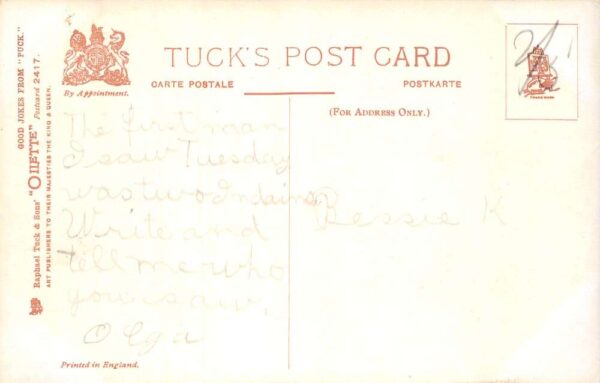 TUCK'S POST CARD
CARTE POSTALE
POSTKARTE
By Appointment.
(FOR ADDRESS ONLY.)
GOOD JOKES FROM "PUCK."
Raphael Tuck & Sons' "OILETTE" Postcard 2417.
ART PUBLISHERS TO THEIR MAJESTIES THE KING & QUEEN.
TRADE MARK
The first man
I saw Tuesday
was two Indains
Write and
tell me who
you saw.
Olga
Bessie K
Printed in England.